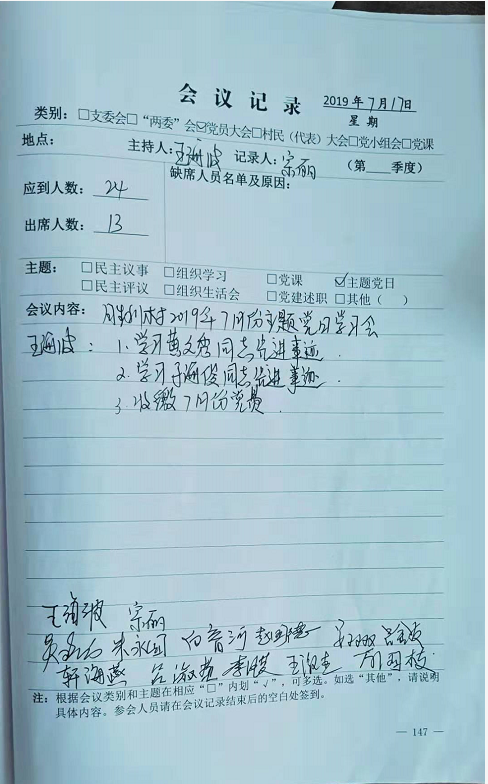 会议记录 2019年7月17日
星 期
类别：□支委会□“两委”会☑党员大会□村民（代表）大会□党小组会□党课
地点： 主持人：王海波 记录人：宗丽 （第 季度）
应到人数：24 缺席人员名单及原因：
出席人数：13
主题：□民主议事 □组织学习 □党课 ☑主题党日
□民主评议 □组织生活会 □党建述职 □其他（ ）
会议内容：胜利村2019年7月份主题党日学习会
王海波：1.学习黄文秀同志先进事迹.
2.学习于海俊同志先进事迹.
3.收缴7月份党费.
王海波 宗丽
朱永国
轩海燕
注：根据会议类别和主题在相应“□”内划“√”，可多选。如选“其他”，请说明
具体内容。参会人员请在会议记录结束后的空白处签到。
— 147 —